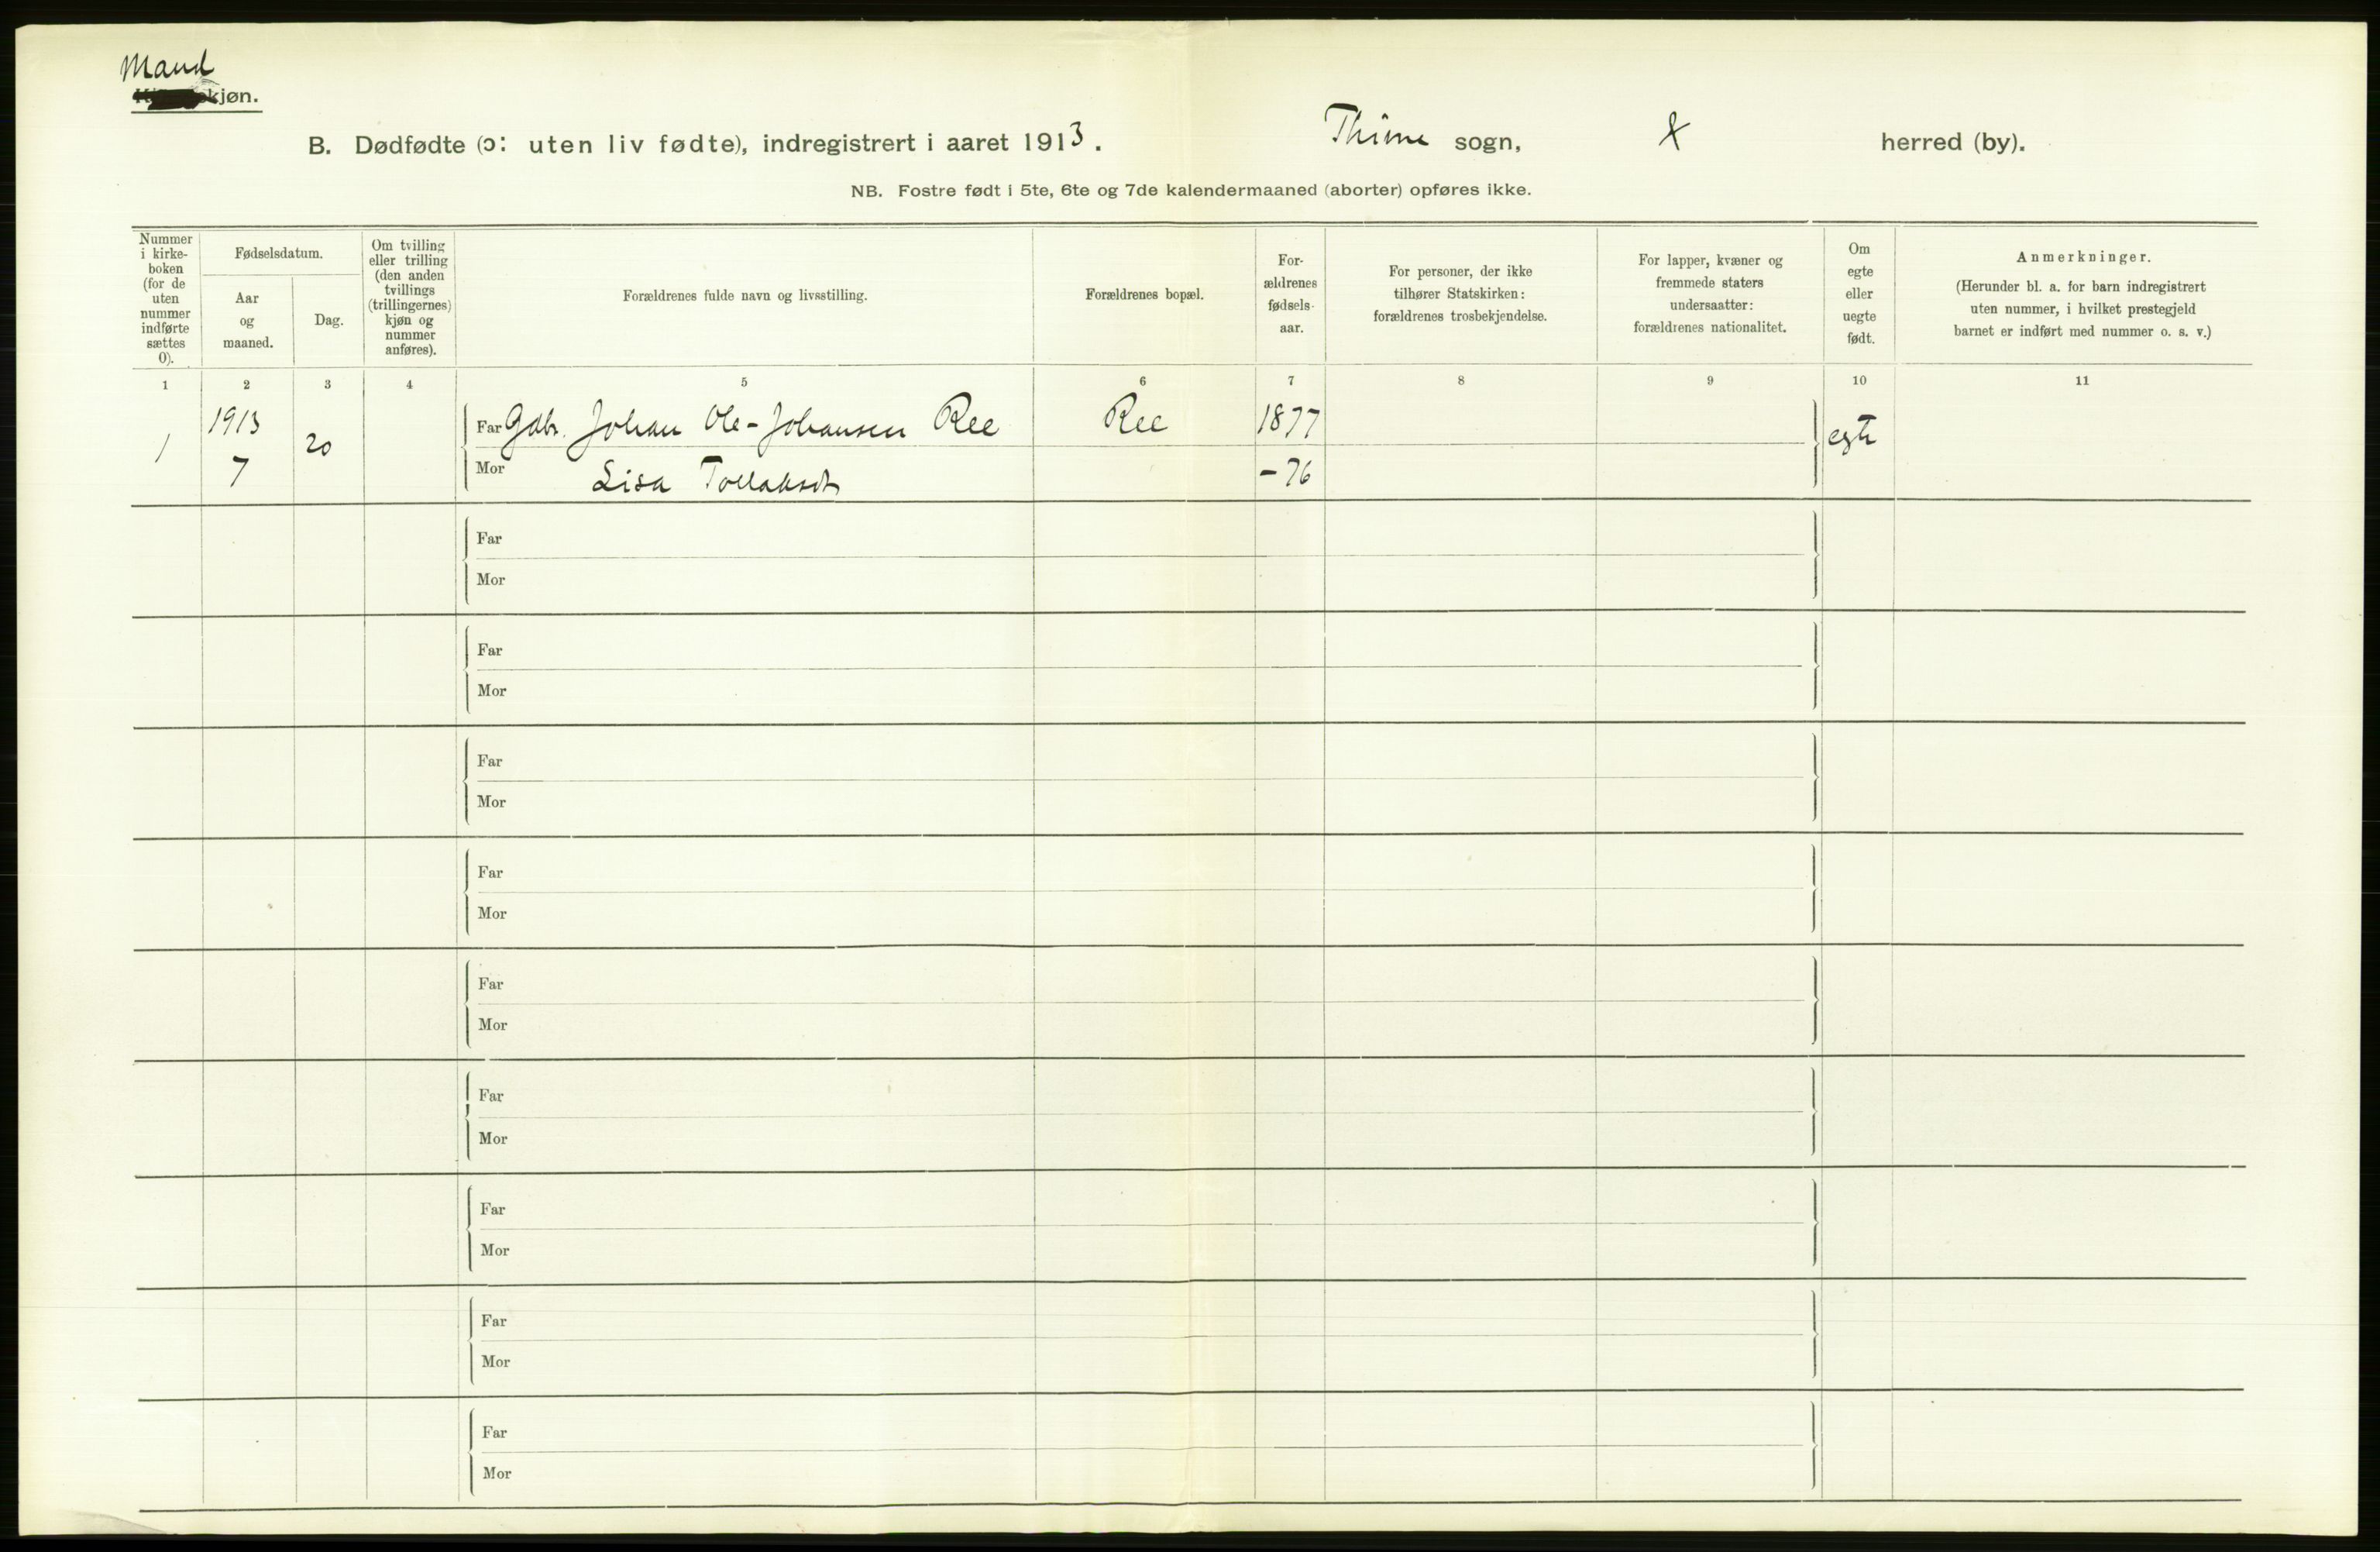 Mand
kjøn.
B. Dødfødte (ɔ: uten liv fødte), indregistrert i aaret 1913. Thime sogn, herred (by).
NB. Fostre født i 5te, 6te og 7de kalendermaaned (aborter) opføres ikke.
Nummer
i kirke-
boken
(for de
uten
nummer
indførte
sættes
0).
Fødselsdatum.
Aar
og
maaned.
Dag.
Om tvilling
eller trilling
(den anden
tvillings
(trillingernes)
kjøn og
nummer
anføres).
Forældrenes fulde navn og livsstilling.
Forældrenes bopæl.
For-
ældrenes
fødsels-
aar.
For personer, der ikke
tilhører Statskirken:
forældrenes trosbekjendelse.
For lapper, kvæner og
fremmede staters
undersaatter:
forældrenes nationalitet.
Om
egte
eller
uegte
født.
Anmerkninger.
(Herunder bl. a. for barn indregistrert
uten nummer, i hvilket prestegjeld
barnet er indført med nummer o. s. v.)
1 2 3 4 5 6 7 8 9 10 11
1 1913 7 20
Far Gdbr. Johan Ole-Johansen Ree Ree 1877 egte
Mor Lisa Tollaksdt -76
Far
Mor
Far
Mor
Far
Mor
Far
Mor
Far
Mor
Far
Mor
Far
Mor
Far
Mor
Far
Mor